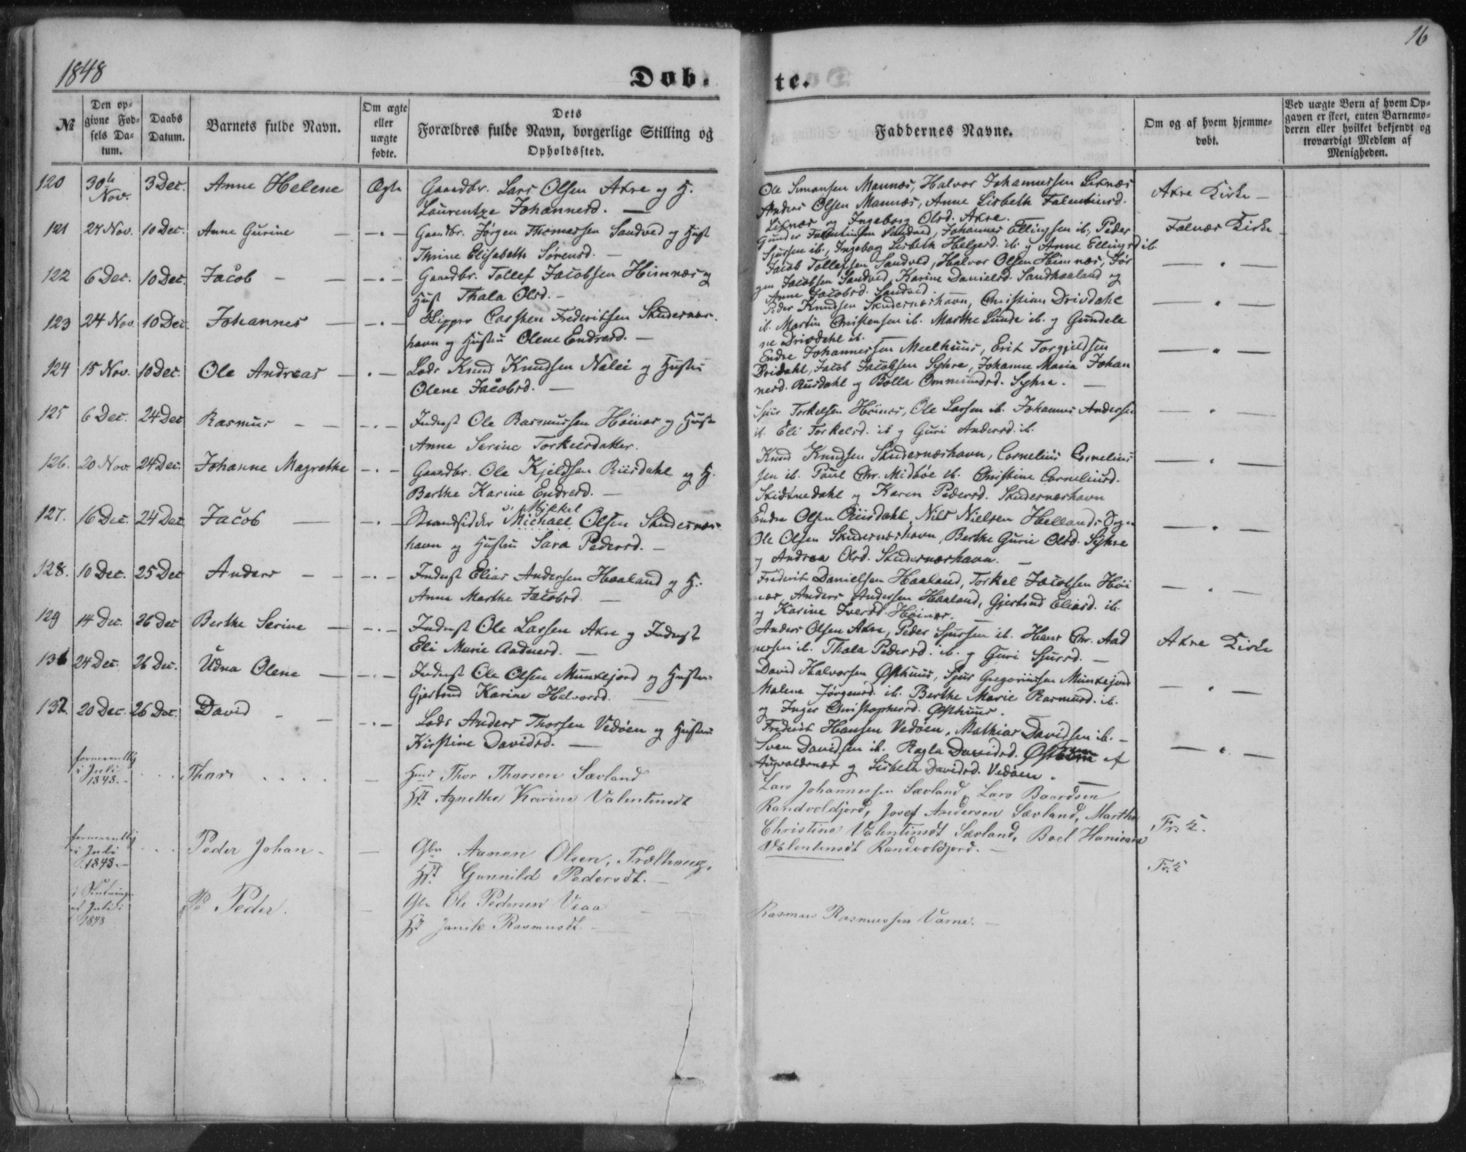 1848
16
Døb.
te.
№
Den op-
givne Fød-
sels Da-
tum.
Daabs
Datum.
Barnets fulde Navn.
Om ægte
eller
uægte
fødte.
Dets
Forældres fulde Navn, borgerlige Stilling og
Opholdssted.
Faddernes Navne.
Om og af hvem hjemme-
døbt.
Ved uægte Børn af hvem Op-
gaven er skeet, enten Barnemo-
deren eller hvilket bekjendt og
troværdigt Medlem af
Menigheden.
120 30te Nov. 3 Dec. Anne Helene Ægte Gaardbr. Lars Olsen Akre og H.
Laurentze Johannesd. —
Ole Simonsen Mannæs, Halvor Johannessen Liknæs
Anders Olsen Mannæs, Anne Lisbeth
Liknæs og Ingeborg Olsd. Akre.
Akre Kirke —
121 21 Nov. 10 Dec. Anne Gurine — - . - Gaardbr. Jørgen Thomassen Sandved og Hust
Thrine Elisabeth Sørensd. —
Gunder Sandved, Johannes Ellingsen ib, Peder
Sjursen ib, Ingeborg Lisbeth Helgesd. ib. og Anne Ellingsd ib
Falnæs Kirke
122 6 Dec. 10 Dec. Jacob — - . - Gaardbr. Tollef Jacobsen Hemnæs og
Hust Thala Olsd. —
Jacob Tollefsen Sandved, Halvor Olsen Hemnæs, Jør
gen Jacobsen Sandved, Karine Danielsd. Sandhaaland og
Anne Jacobsd. Sandved.
123 24 Nov. 10 Dec. Johannes — - . - Skipper Carsten Frederiksen Skudesnæs-
havn og Hustru Olene Endresd. —
Peder Knudsen Skudesnæshavn, Christian Drivdahl
ib. Martin Christensen ib. Marthe Lunde ib. og Gundele
ne Drivdahl ib.
124 15 Nov. 10 Dec. Ole Andreas — - . - Lods Knud Knudsen Nalei og Hustru
Olene Jacobsd. —
Endre Johannessen Meelhuus, Erik Torgjeldsen
Dridahl, Jacob Jacobsen Syhre, Johanne Maria Johan
nesd. Riisdahl og Bolla Ommundsd. Syhre. —
125 6 Dec. 24 Dec Rasmus — - . - Inderst Ole Rasmussen Høinæs og Hust
Anne Serine Torkelsdatter.
Sjur Torkelsen Høinæs, Ole Larsen ib. Johannes Andersen
ib. Eli Torkelsd. ib og Guri Andersd ib.
126. 20 Nov 24 Dec. Johanne Magrethe - . - Gaardbr. Ole Kjeldsen Riisdahl og H.
Berthe Karine Endresd. —
Knud Knudsen Skudesnæshavn, Cornelius Cornelius
sen ib. Paul Chr. Midbøe ib. Christine Corneliusd.
og Karen Pedersd. Skudesnæshavn
127. 16 Dec. 24 Dec Jacob — - . - Strandsidder Michael Olsen Skudesnæs-
Mikkel
havn og Hustru Sara Pedersd. —
Endre Olsen Riisdahl, Nils Nielsen Hellands Sogn
Ole Olsen Skudesnæshavn, Berthe Gurie Olsd. Syhre
og Andrea Olsd. Skudesnæshavn. —
128. 10 Dec. 25 Dec Anders — - . - Inderst Elias Andersen Haaland og H:
Anne Marthe Jacobsd. —
Frederik Danielsen Haaland, Torkel Jacobsen Høi
næs, Anders Andersen Haaland, Gjertrud Eliasd. ib.
og Karine Iversd. Høinæs. —
129 14 Dec. 26 Dec Berthe Serine — - . - Inderst Ole Larsen Akre og Inderst
Eli Marie Aadnesd. —
Anders Olsen Akre, Peder Sjursen ib. Hans Chr. Aad
nesen ib. Thala Pedersd. ib. og Guri Sjursd. —
Akre Kirke
131 24 Dec. 26 Dec. Udna Olene — - . - Inderst Ole Olsen Munkejord og Hustru
Gjertrud Karine Halvorsd. —
David Halvorsen Østhuus, Sjur Gregoriussen Munkejord
Malene Jørgensd. ib. Berthe Marie Rasmusd. ib.
og Inger Christophersd. Østhuus.
132 20 Dec. 26 Dec. David — - . - Lods Anders Thorsen Vedøen og Hustru
Kirstine Davidsd. —
Frederik Hansen Vedøen, Mathias Davidsen ib. —
Sven Davidsen ib. Ragla Davidsd. af
Augvaldsnæs og Lisbeth Davidsd. Vedøen.
formeentlig
i Juli
1848. — Thor . . . . Huus Thor Thorsen Sævland
Hst Agnethe Karine Valentinsdt
Lars Johannessen Sævland, Lars Baardsen
Randvoldjord, Josef Andersen Sævland, Marthe
Christine Valentinsdt Sævland, Boel
Valentinsdt Randvoldjord. —
Fr.
formeentlig
i Juli
1848. — Peder Johan. — Gbr Aanen Olsen, Trælhoug,
Hst Gunnild Pedersdt. —
Fr.
i Slutningen
af Juli
1848 Peder. Gbr Ole Pedersen Vaaa
Hst Rasmusdt. —
Rasmus Rasmussen Varne. —